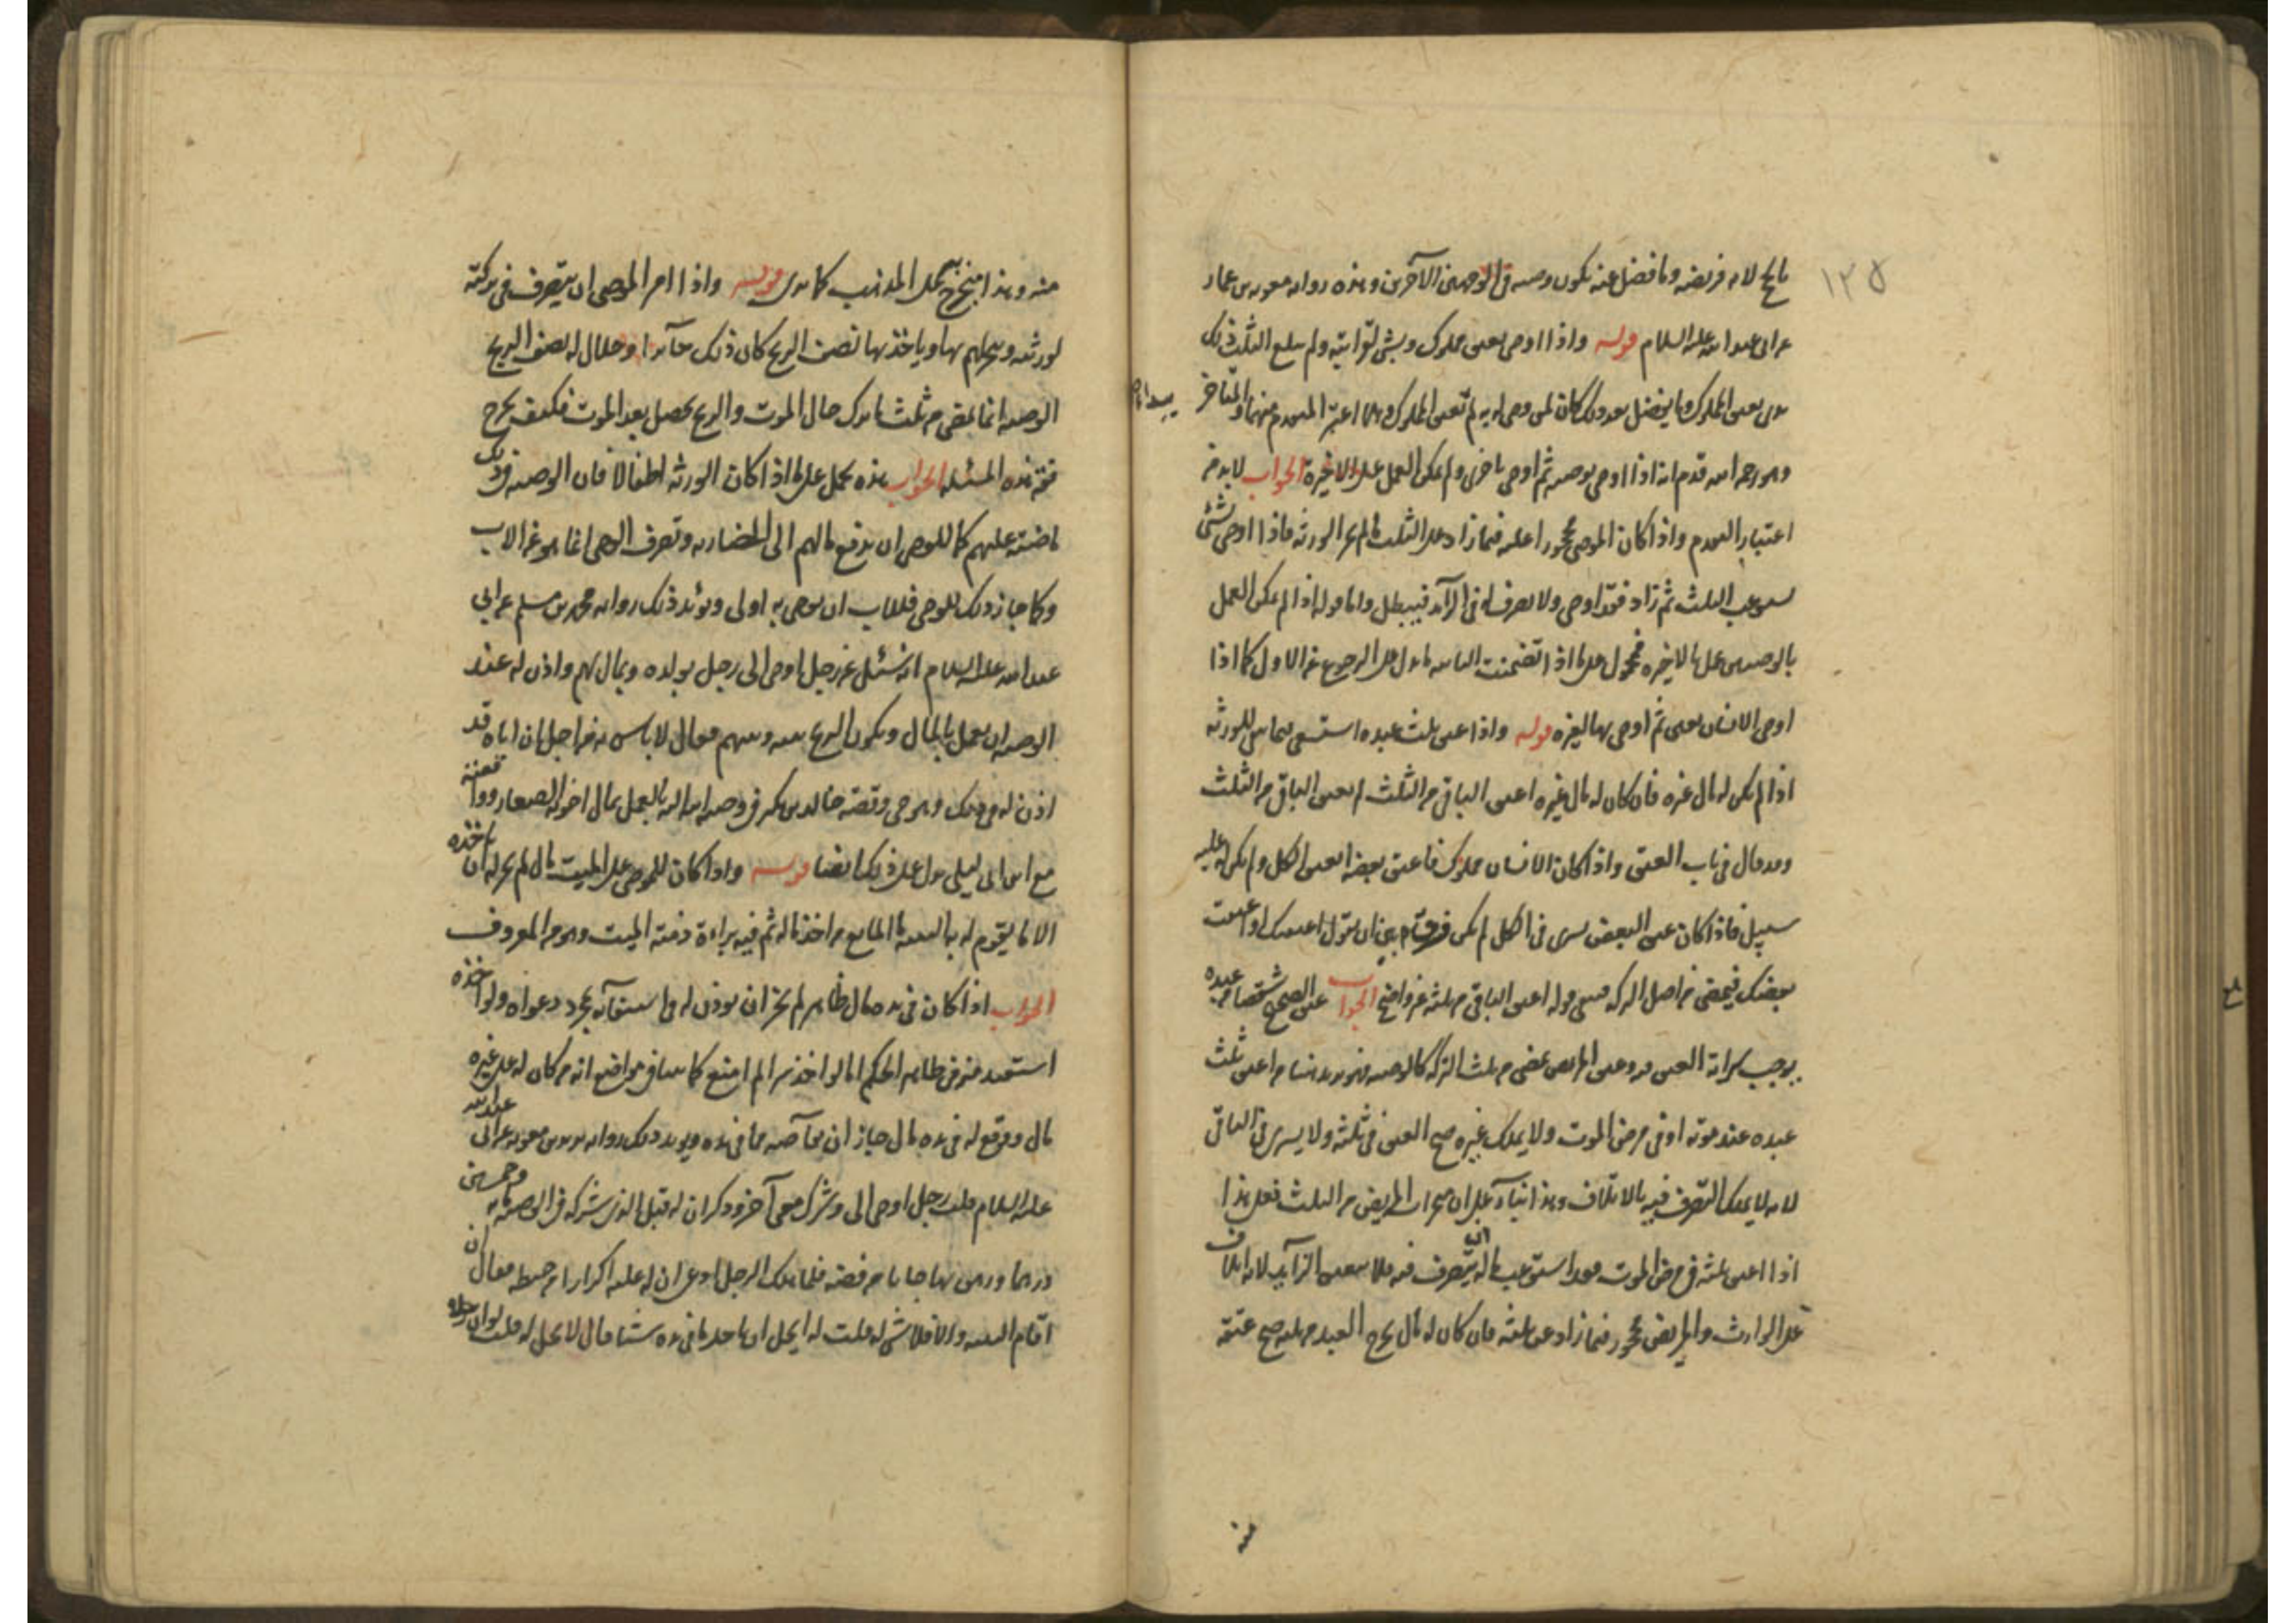 ١٢٥
بالحج لانه فريضه وما فضل عنه يكون وصيه في الوجهين الآخرين وهذه روايه معويه بن عمار
عن ابى عبد الله عليه السلام قوله واذا اوصى بعتق مملوك وبشئ لقرابته ولم يبلغ الثلث ذلك
بدئ بعتق المملوك وما يفضل بعد ذلك كان لمن وصى له به لم تعتق المملوك وهلا اعتبر المتقدم منهما والمتاخر
وهو رحمه الله قدم انه اذا اوصى بوصيه ثم اوصى باخرى ولم يمكن العمل على الاخيرة الجواب لا بد من
اعتبار المتقدم واذا كان الموصى محجورا عليه فيما زاد على الثلث ما لم يجز الورثه فاذا اوصى بشئ
يستوعب الثلث ثم زاد فقد اوصى ولا تصرف له في الزآئد فيبطل واما قوله اذا لم يمكن العمل
بالوصيتين عمل بالاخيره فمحمول على ما اذا تضمنت الثانيه ما يدل على الرجوع عن الاول كما اذا
اوصى الانسان بعين ثم اوصى بها لغيره قوله واذا اعتق ثلث عبده استسعى في الباقى للورثه
اذا لم يكن له مال غيره فان كان له مال غيره اعتق الباقي من الثلث لم يعتق الباقي من الثلث
وقد قال في باب العتق واذا كان الانسان مملوك فاعتق بعضه انعتق الكل ولم يكن له عليه
سبيل فاذا كان عتق البعض يسرى في الكل لم يكن فرق بين ان يقول اعتقتك او اعتقت
بعضك فيمضى من اصل التركه فمعنى قوله اعتق الباقي من ثلثه غير واضح الجواب عتق الصحيح شقصا من عبده
يوجب سراية العتق فيه وعتق المريض يمضى من ثلث التركه كالوصيه فهو يريد هنا من اعتق ثلث
عبده عند موته او في مرض الموت ولا يملك غيره صح العتق في ثلثه ولا يسرى في الباقى
لانه لا يملك التصرف فيه بالاتلاف وهذا بنآء على ان منجزات المريض من الثلث فعلى هذا
اذا اعتق ثلثه في مرض الموت فقد استوعب ماله التصرف فيه فلا ينعتق الزآيد لانه اتلاف
على الوارث والمريض محجور فيما زاد عن ثلثه فان كان له مال يخرج العبد من ثلثه صح عتقه
منه وهذا منخرج به على المذهب كما ترى قوله واذا امر الموصى ان يتصرف في تركته
لورثته ويتجر لهم بها وياخذ بها نصف الربح كان ذلك جآئزا وحلال له نصف الربح
الوصيه انما تمضى من ثلث ما ترك حال الموت والربح يحصل بعد الموت فكيف يخرج
فقه هذه المسئله الجواب هذه تحمل على ما اذا كان الورثه اطفالا فان الوصيه في ذلك
ماضية عليهم كما للوصى ان يدفع مالهم الى المضاربه وتصرف الوصى انما هو عن الاب
وكما جاز ذلك للوصى فللاب ان يوصى به اولى ويؤيد ذلك روايه محمد بن مسلم عن ابى
عبد الله عليه السلام انه سئل عن رجل اوصى الى رجل بولده وبمال لهم واذن له عند
الوصيه ان يعمل بالمال ويكون الربح بينه وبينهم فقال لا باس به من اجل ان اباه قد
اذن له في ذلك وهو حى وقصة خالد بن بكر في وصيه ابيه اليه بالعمل بمال اخوته الصغار وواقعته
مع ابن ابى ليلى تدل على ذلك ايضا قوله واذا كان للوصى على الميت مال لم يجز له ان ياخذه
الا ما يقوم له به البينه ما المانع من اخذ ماله ثم فيه براءة ذمة الميت وهو من المعروف
الجواب اذا كان في يده مال ظاهر لم يجز ان يؤذن له في استيفآئه بمجرد دعواه ولو اخذه
استعيد منه في ظاهر الحكم اما لو اخذ سرا لم يمنع كما بينا في مواضع انه من كان له على غيره
مال ووقع له في يده مال جاز ان يقآصه مما في يده ويؤيد ذلك روايه بريد بن معويه عن ابى عبد الله
عليه السلام قلت رجل اوصى الى وشرك معى آخر وذكر ان له قبل الذى شركه في الوصيه مايه وخمسين
درهما ورهن بها جاما من فضه فلما هلك الرجل ادعى ان له عليه اكرارا من حنطه فقال ان
اقام البينه والا فلا شئ له قلت له ايحل ان ياخذ مما في يده شئا قال لا يحل له قلت لو ان رجلا